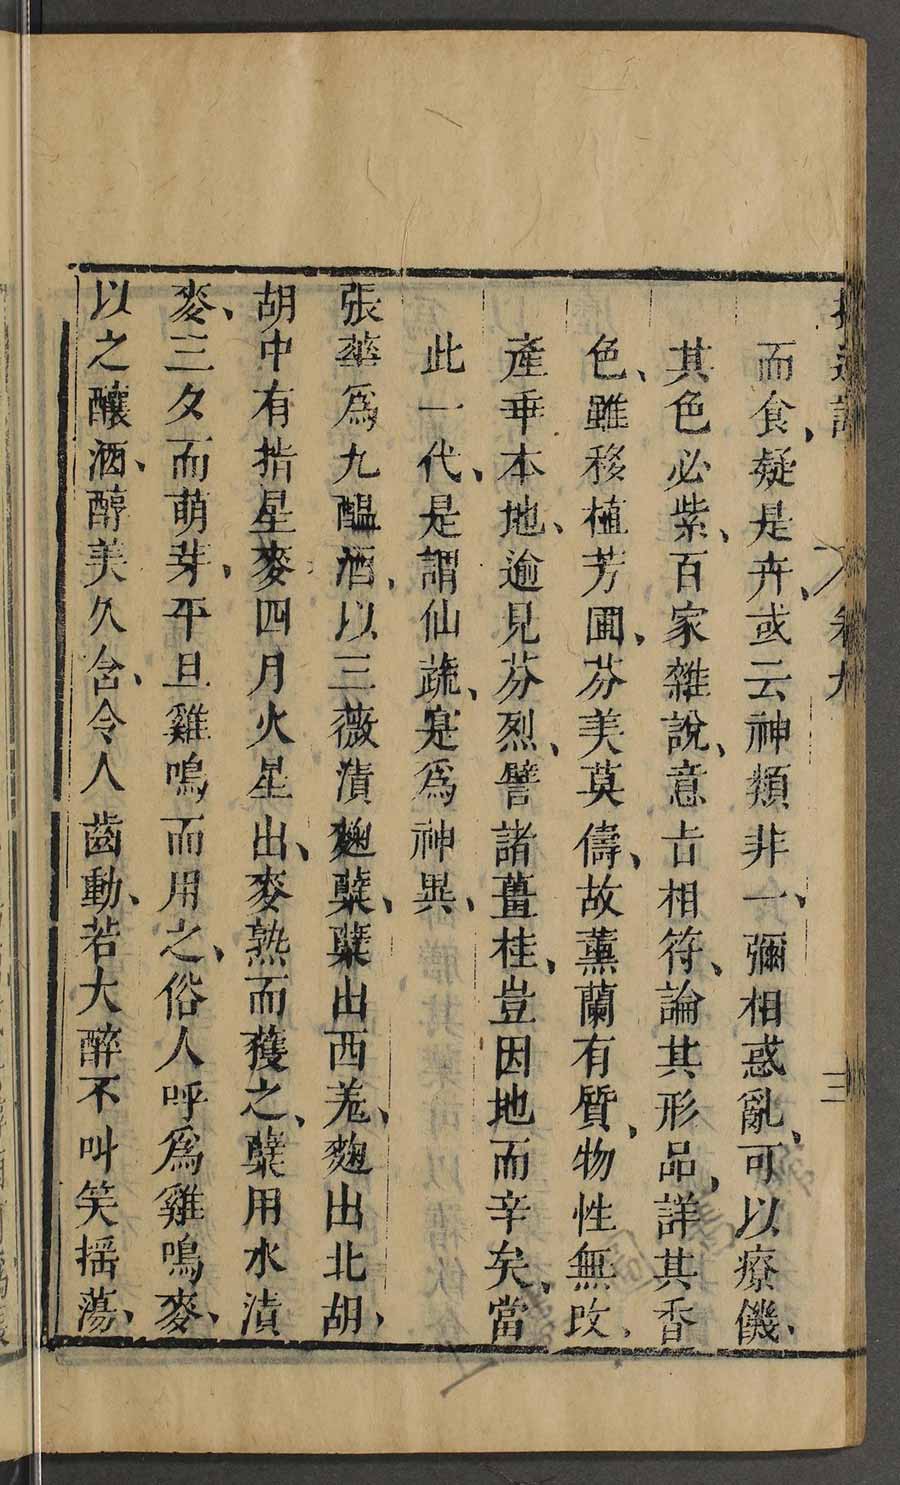 拾遺記 卷九 三
而食疑是卉或云神類非一彌相惑亂可以療饑
其色必紫百家雜說意旨相符論其形品詳其香
色雖移植芳圃芬美莫儔故薰蘭有質物性無改
產乖本地逾見芬烈譬諸薑桂豈因地而辛矣當
此一代是謂仙蔬寔爲神異
張華爲九醞酒以三薇漬麴櫱櫱出西羗麴出北胡
胡中有指星麥四月火星出麥熟而穫之櫱用水漬
麥三夕而萌芽平旦雞鳴而用之俗人呼爲雞鳴麥
以之釀酒醇美久含令人齒動若大醉不叫笑揺蕩